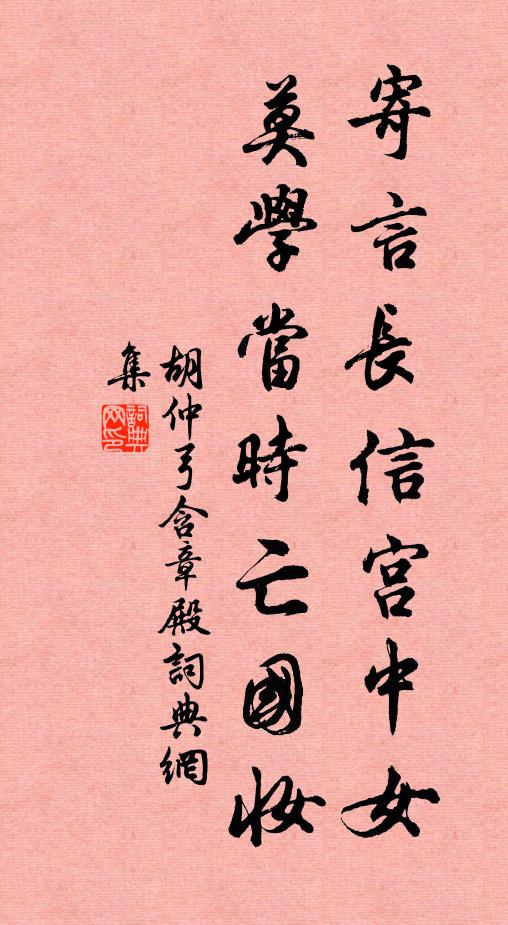 寄言長信宮中女
莫學當時亡國妝
胡仲弓含章殿詞典網
集
詞典
网印